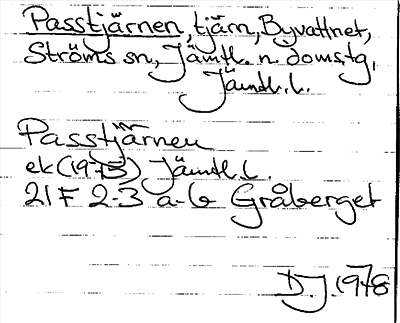 Passtjärnen, tjärn, Byvattnet,
Ströms sn, Jämtl. n. doms.tg,
Jämtl. l.
Passtjärnen
ek (1975) Jämtl. l.
21F 2-3 a-b Gråberget
DJ 1978